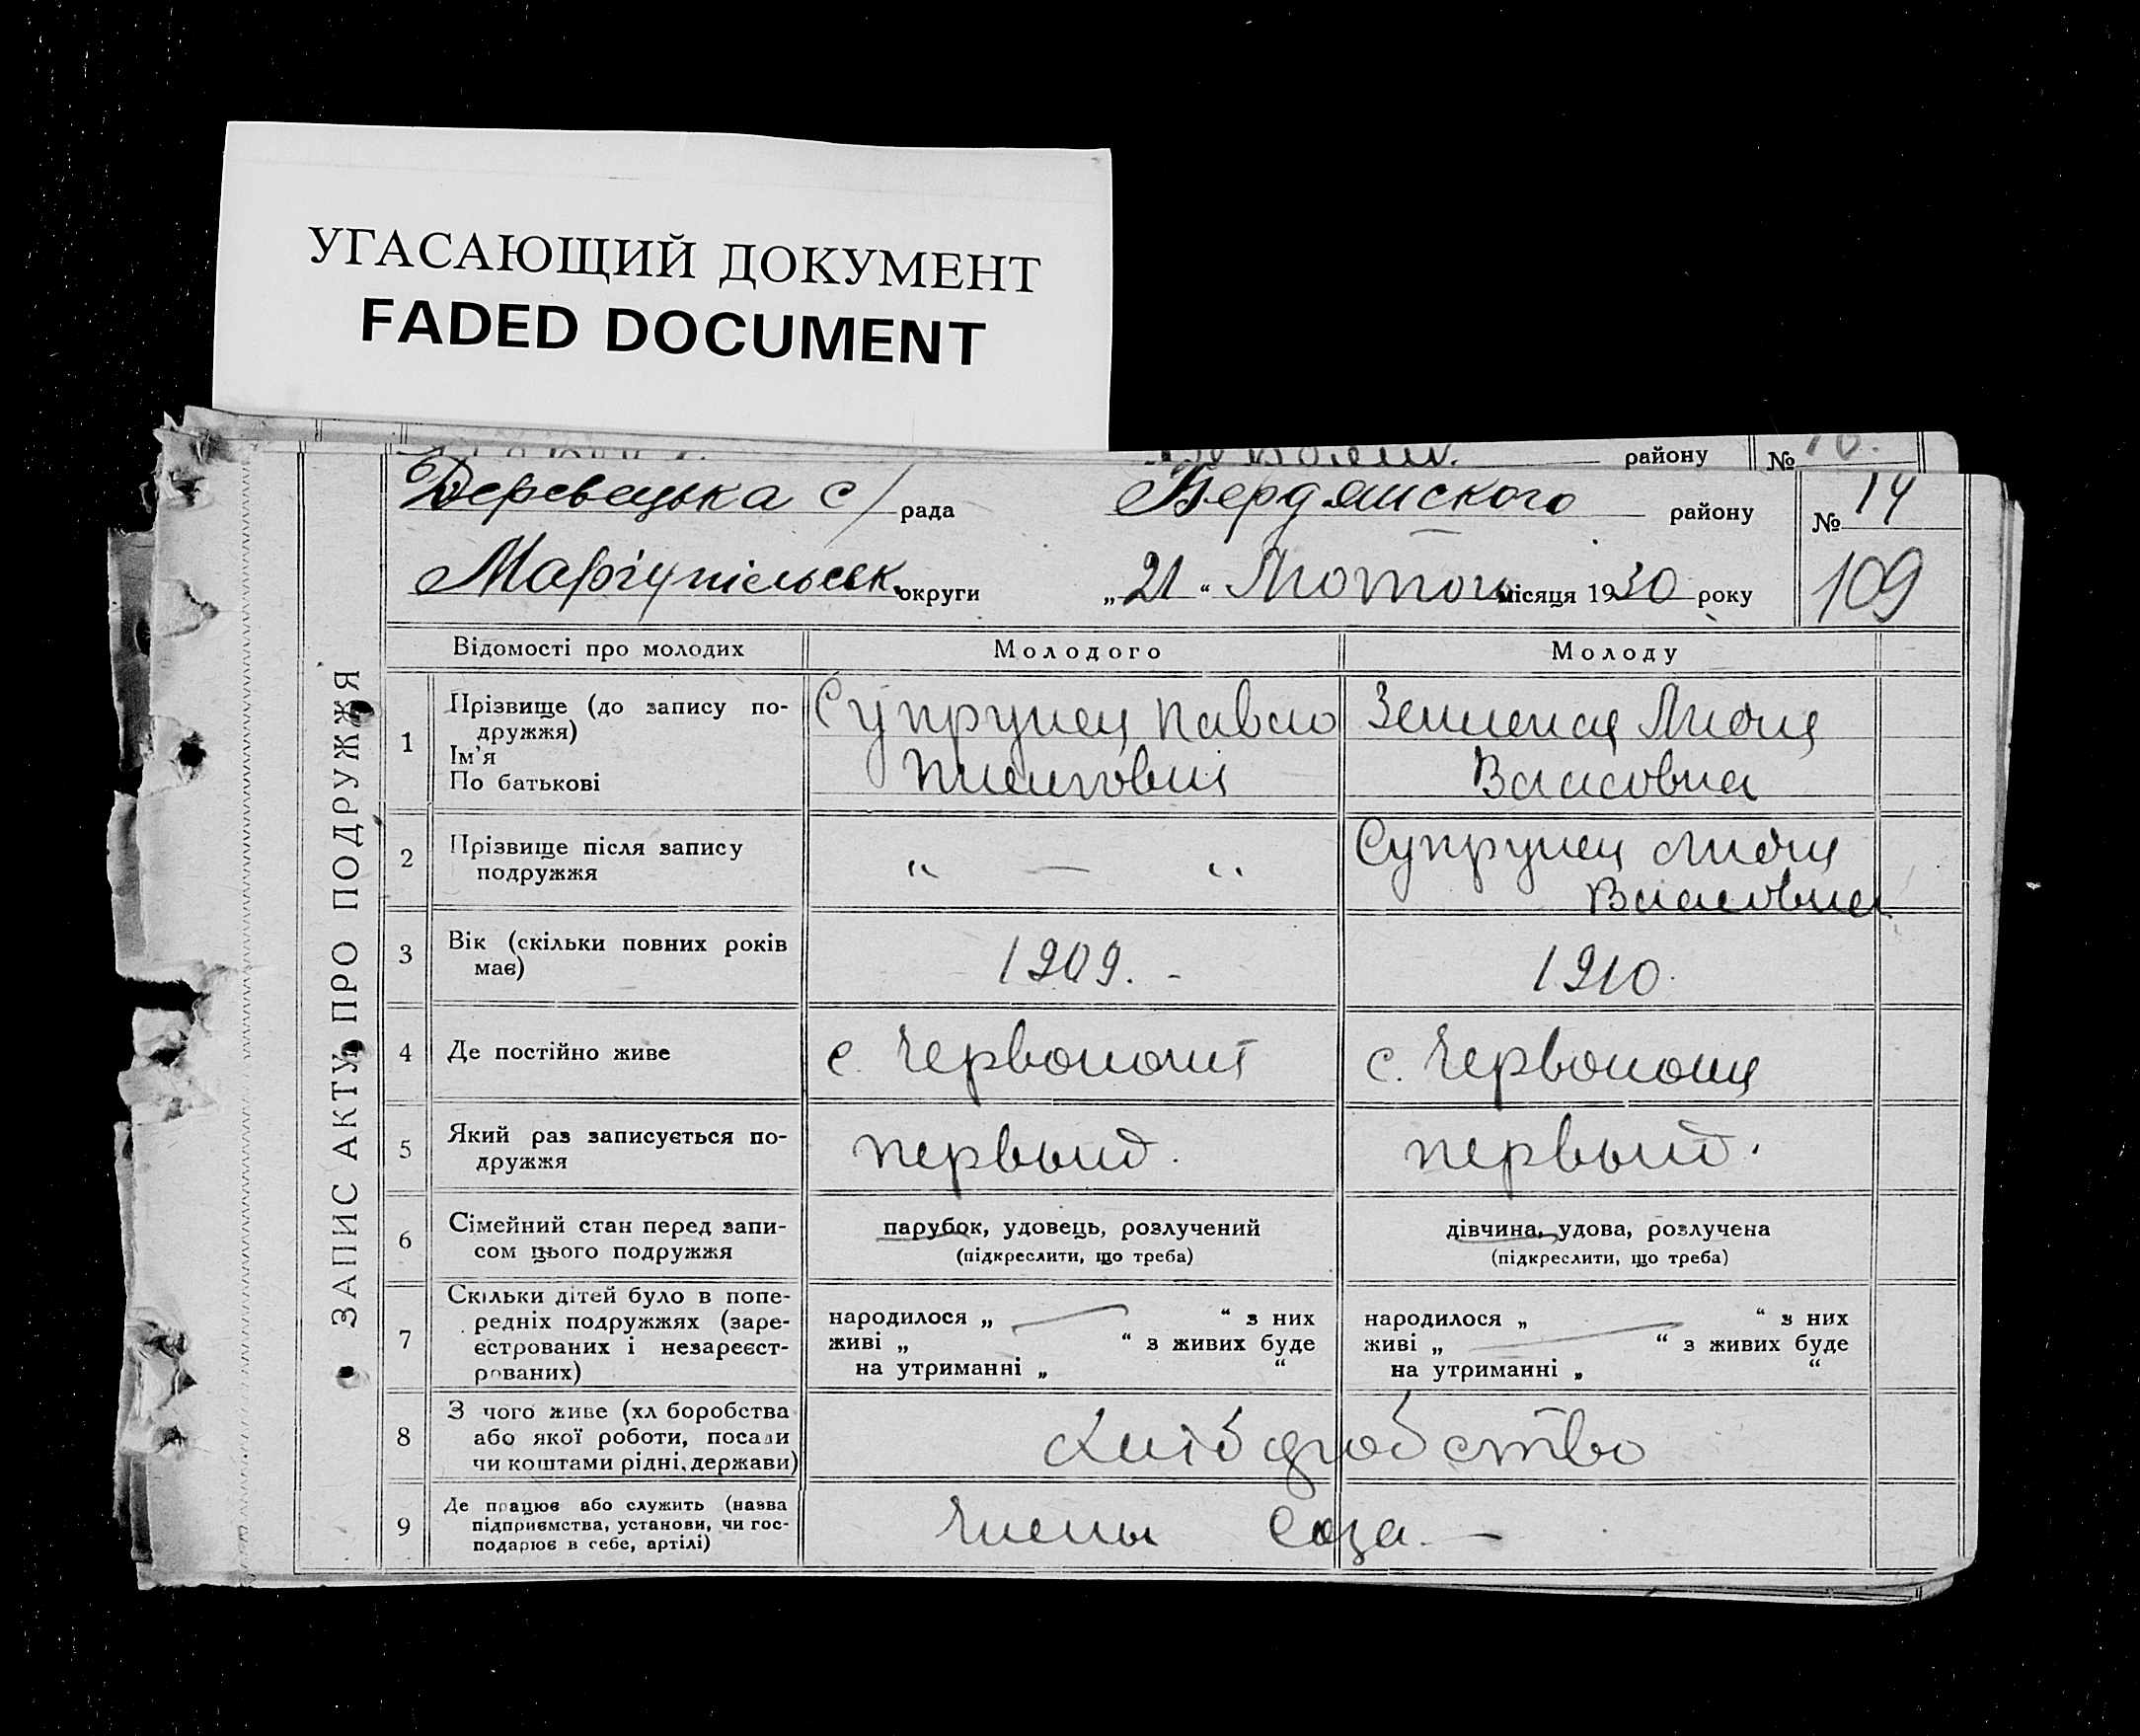 УГАСАЮЩИЙ ДОКУМЕНТ
FADED DOCUMENT
району №
Деревецька с/ рада Бердянского району № 14
Маріупільськ округи „21“ Лютого місяця 1930 року 109
ЗАПИС АКТУ ПРО ПОДРУЖЖЯ
Відомості про молодих Молодого Молоду
1 Прізвище (до запису по-
дружжя)
Ім'я
По батькові
Супрунец Павло
Пилипович
Лидия
Власовна
2 Прізвище після запису
подружжя
„ — “
Супрунец Лидия
Власовна
3 Вік (скільки повних років
має)
1909. -
1910.
4 Де постійно живе
с.
с.
5 Який раз записується по-
дружжя
первый.
первый.
6 Сімейний стан перед запи-
сом цього подружжя
парубок, удовець, розлучений
(підкреслити, що треба)
дівчина, удова, розлучена
(підкреслити, що треба)
7 Скільки дітей було в попе-
редніх подружжях (заре-
єстрованих і незареєст-
рованих)
народилося „ “ з них
живі „ “ з живих буде
на утриманні „ “
народилося „ “ з них
живі „ “ з живих буде
на утриманні „ “
8 З чого живе (хл боробства
або якої роботи, посади
чи коштами рідні, держави)
9 Де працює або служить (назва
підприємства, установи, чи гос-
подарює в себе, артілі)
Члены Соза. —